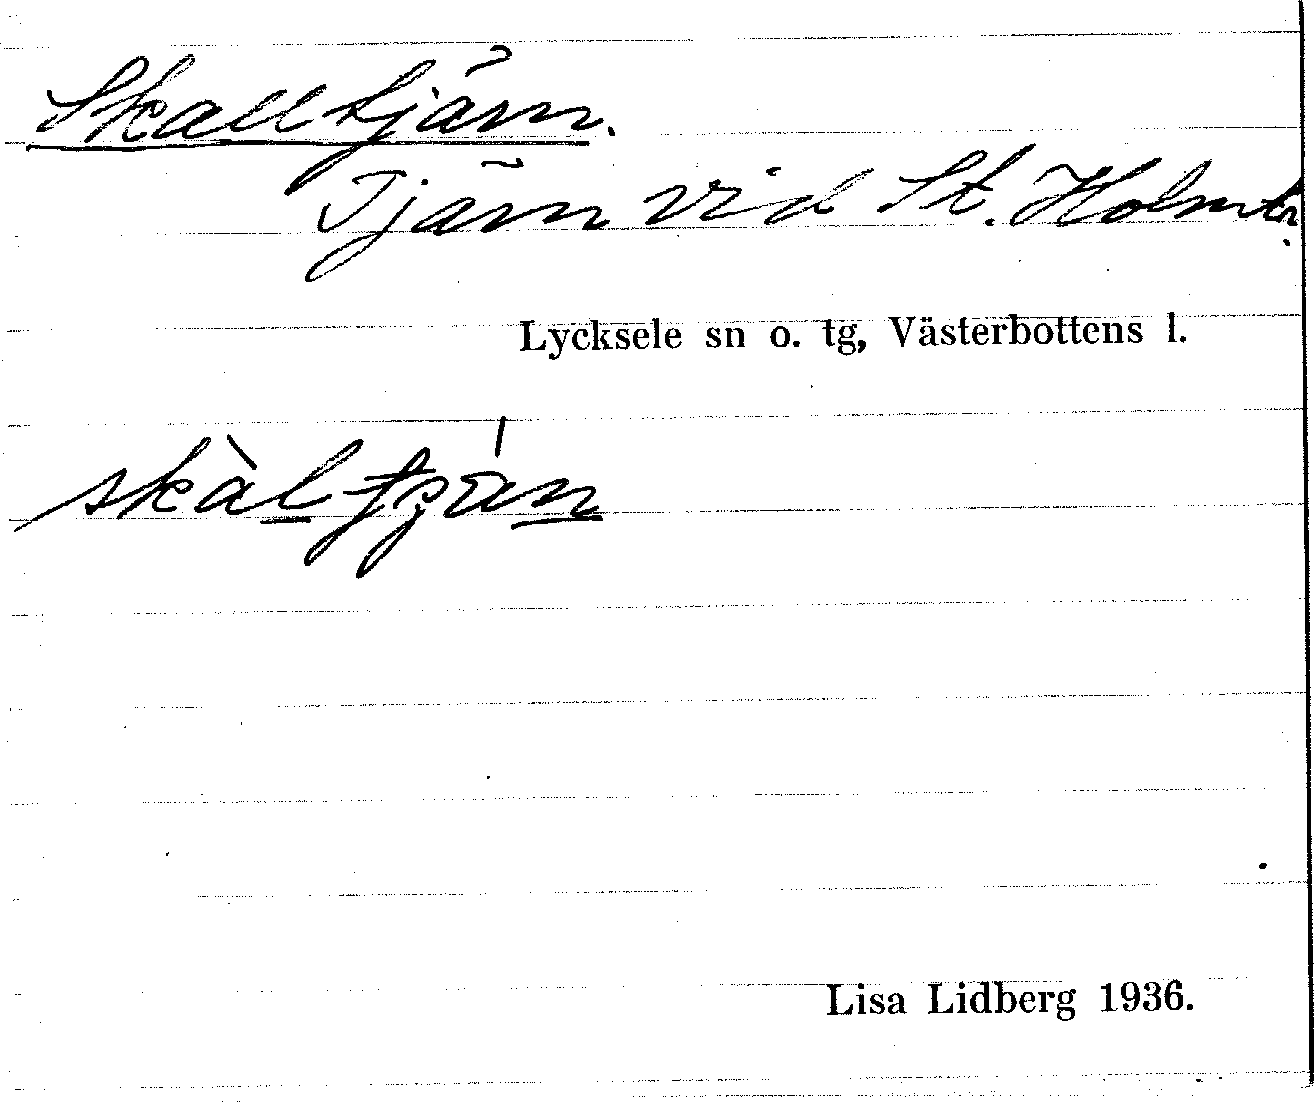 Skalltjärn.
Tjärn vid St. Holmtr.
Lycksele sn o. tg, Västerbottens l.
skàltjạ́n
Lisa Lidberg 1936.